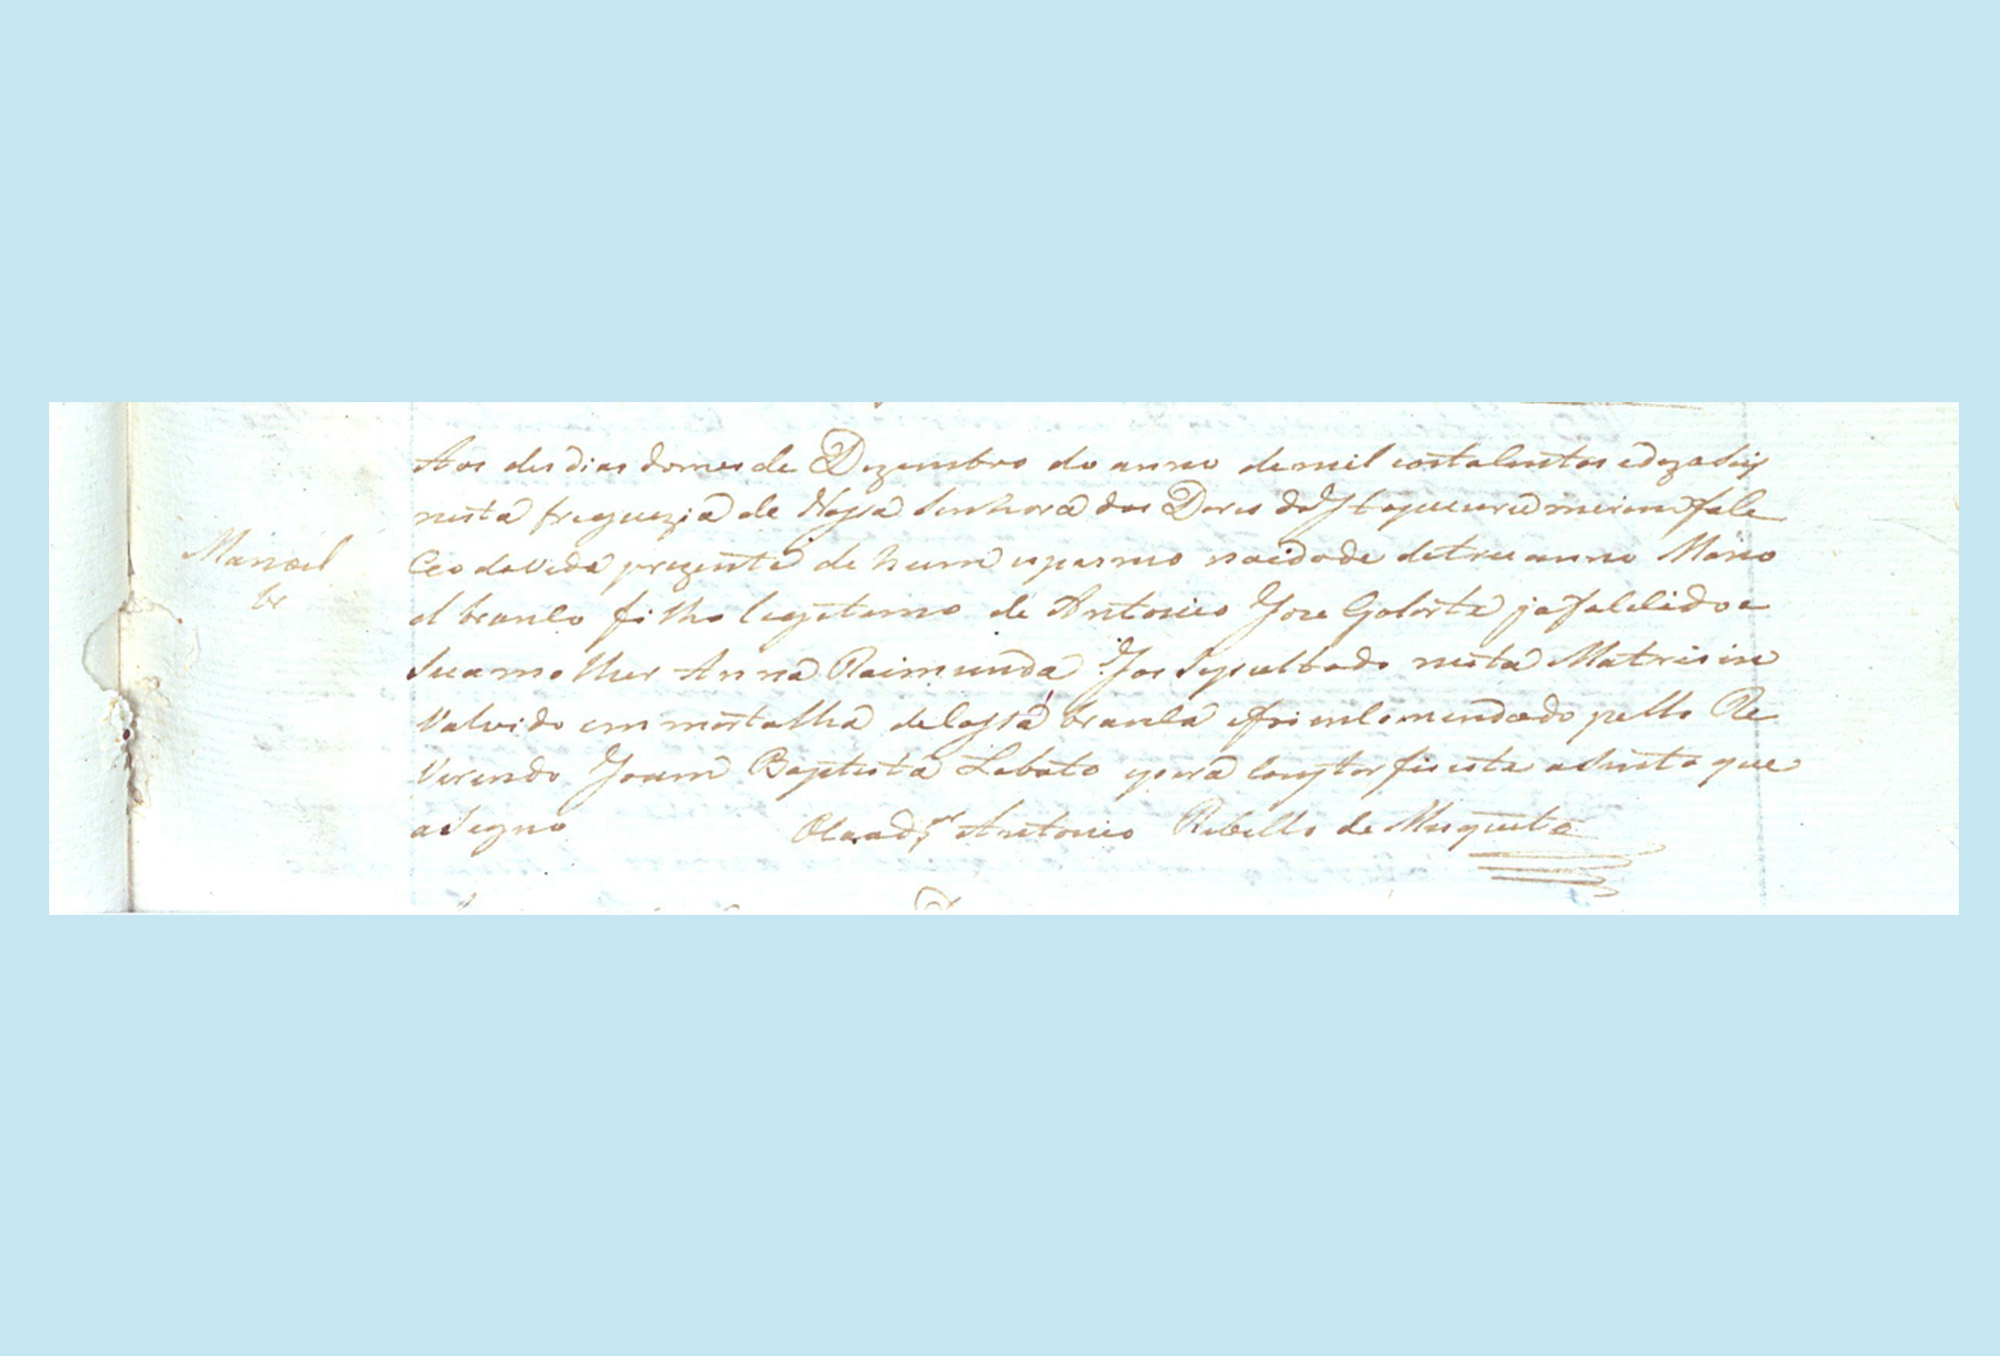 Manoel
br
Aos des dias domes de Dezembro do anno de mil eoitosentos edezaseis
nesta freguezia de Nossa Senhora das Dores do Itapucurú mirim fale
Ceo davida prezente de hum espasmo naidade detres anno Mano
el branco filho legitimo de Antonio Joze ja falecido e
Sua molher Anna Raimunda Foi Sepultado nesta Matris in
Valvido em mortalha decassa branca efoi emcomendado pello Re
Verendo Joam Baptista Lobato epara Constar fis este asento que
aSegno
Antonio Rebello de Mesquita